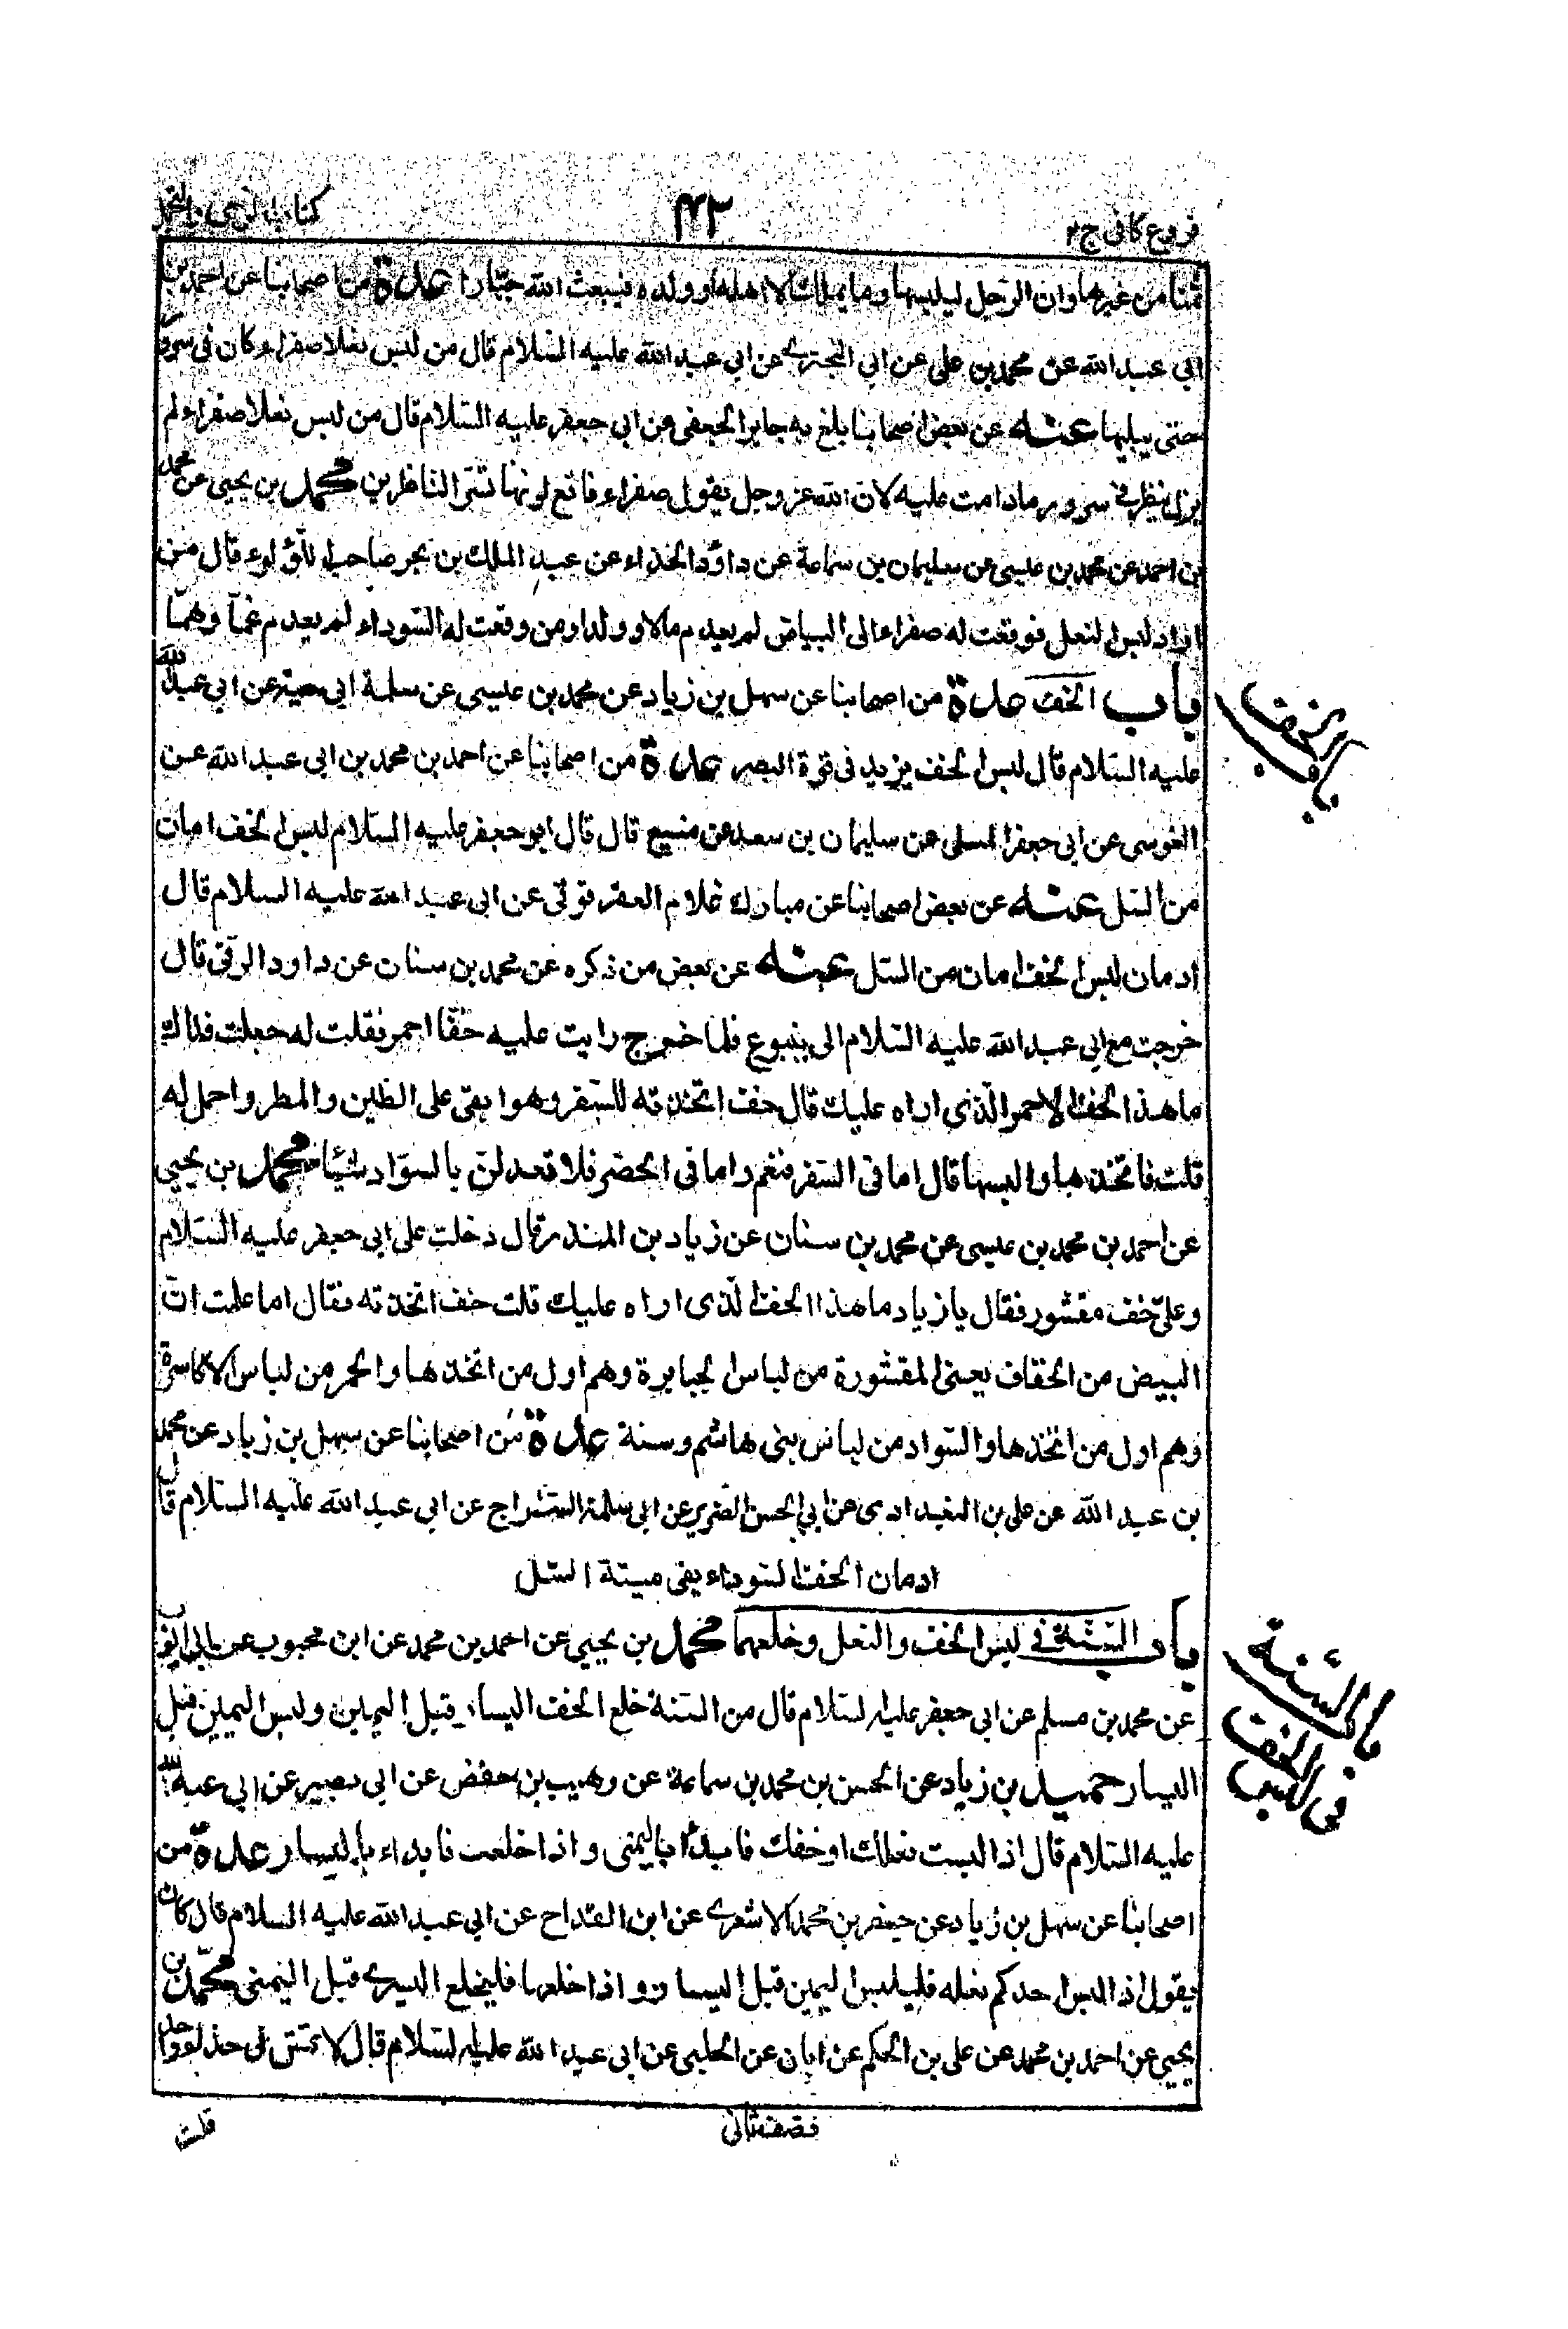 فروع كافى ج ٢
٤٢
كتاب الزى والتجمل
ثمنا من غيرها وان الرجل ليلبسها وما يملك الا اهله او ولده فيبعث الله جبارا عدة من اصحابنا عن احمد بن
ابي عبد الله عن محمد بن على عن ابي البخترى عن ابي عبد الله عليه السلام قال من لبس نعلا صفراء كان فى سرور
حتى يبليها عنه عن بعض اصحابنا بلغ به جابر الجعفى عن ابى جعفر عليه السلام قال من لبس نعلا صفراء لم
يزل ينظر فى سرور مادامت عليه لان الله عز وجل يقول صفراء فاقع لونها تسر الناظرين محمد بن يحيى عن محمد
بن احمد عن محمد بن عيسى عن سليمان بن سماعة عن داؤد الحذاء عن عبد الملك بن بحر صاحب اللؤلوء قال من
اراد لبس النعل فوقعت له صفراء الى البياض لم يعدم مالا وولدا ومن وقعت له السوداء لم يعدم غما وهما
باب الخف عدة من اصحابنا عن سهل بن زياد عن محمد بن عيسى عن سلمة ابى عن ابى عبد الله
عليه السلام قال لبس الخف يزيد فى قوة البصر عدة من اصحابنا عن احمد بن محمد بن ابى عبد الله عن
العوسى عن ابى جعفر المسلى عن سليمان بن سعد عن منيع قال قال ابو جعفر عليه السلام لبس الخف امان
من السل عنه عن بعض اصحابنا عن مبارك غلام العقرقوقى عن ابى عبد الله عليه السلام قال
ادمان لبس الخف امان من السل عنه عن بعض من ذكره عن محمد بن سنان عن داود الرقى قال
خرجت مع ابي عبد الله عليه السلام الى ينبوع فلما خرج رايت عليه خفا احمر فقلت له جعلت فداك
ما هذا الخف الاحمر الذى اراه عليك قال خف اتخذته للسفر وهو ابقى على الطين والمطر واحمل له
قلت فاتخذها والبسها قال اما فى السفر فنعم واما فى الحضر فلا تعدلن بالسواد شيئا محمد بن يحيى
عن احمد بن محمد بن عيسى عن محمد بن سنان عن زياد بن المنذر قال دخلت على ابى جعفر عليه السلام
وعلى خف مقشور فقال يا زياد ما هذا الخف الذى اراه عليك قلت خف اتخذته فقال اما علمت ان
البيض من الخفاف يعنى المقشورة من لباس الجبابرة وهم اول من اتخذها والحمر من لباس الاكاسرة
وهم اول من اتخذها والسواد من لباس بنى هاشم وسنة عدة من اصحابنا عن سهل بن زياد عن محمد
بن عبد الله عن على بن البغدادى عن ابي الحسن الضرير عن ابى سلمة السراج عن ابى عبد الله عليه السلام قال
ادمان الخف السوداء يقى ميتة السل
باب السنة فى لبس الخف والنعل وخلعهما محمد بن يحيى عن احمد بن محمد عن ابن محبوب عن ابى ايوب
عن محمد بن مسلم عن ابى جعفر عليه السلام قال من السنة خلع الخف اليسار قبل اليمين ولبس اليمين قبل
اليسار حميد بن زياد عن الحسن بن محمد بن سماعة عن وهيب بن حفص عن ابى بصير عن ابى عبد الله
عليه السلام قال اذا لبست نعلك او خفك فابدأ باليمنى واذا خلعت فابداء باليسار عدة من
اصحابنا عن سهل بن زياد عن جعفر بن محمد الاشعرى عن ابن القداح عن ابى عبد الله عليه السلام قال كان
يقول اذا لبس احدكم نعله فليلبس اليمين قبل اليسار واذا خلعها فليخلع اليسرى قبل اليمنى محمد بن
يحيى عن احمد بن محمد عن على بن الحكم عن ابان عن الحلبى عن ابى عبد الله عليه السلام قال لا تمش فى حذاء واحد
نصف ثانى
قلت
باب الخف
باب السنة
فى لبس الخف